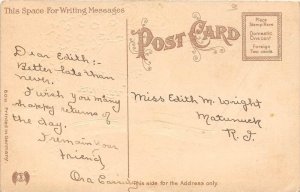 This Space For Writing Messages
POST CARD
Place
Stamp Here
Domestic
One cent
Foreign
Two cents
Dear Edith:-
Better late than
never.
I wish you many
happy returns of
the day.
I remain your
friend
Ora
Miss Edith M. Wright
Matunuck
R. I.
Printed in Germany
This side for the Address only.